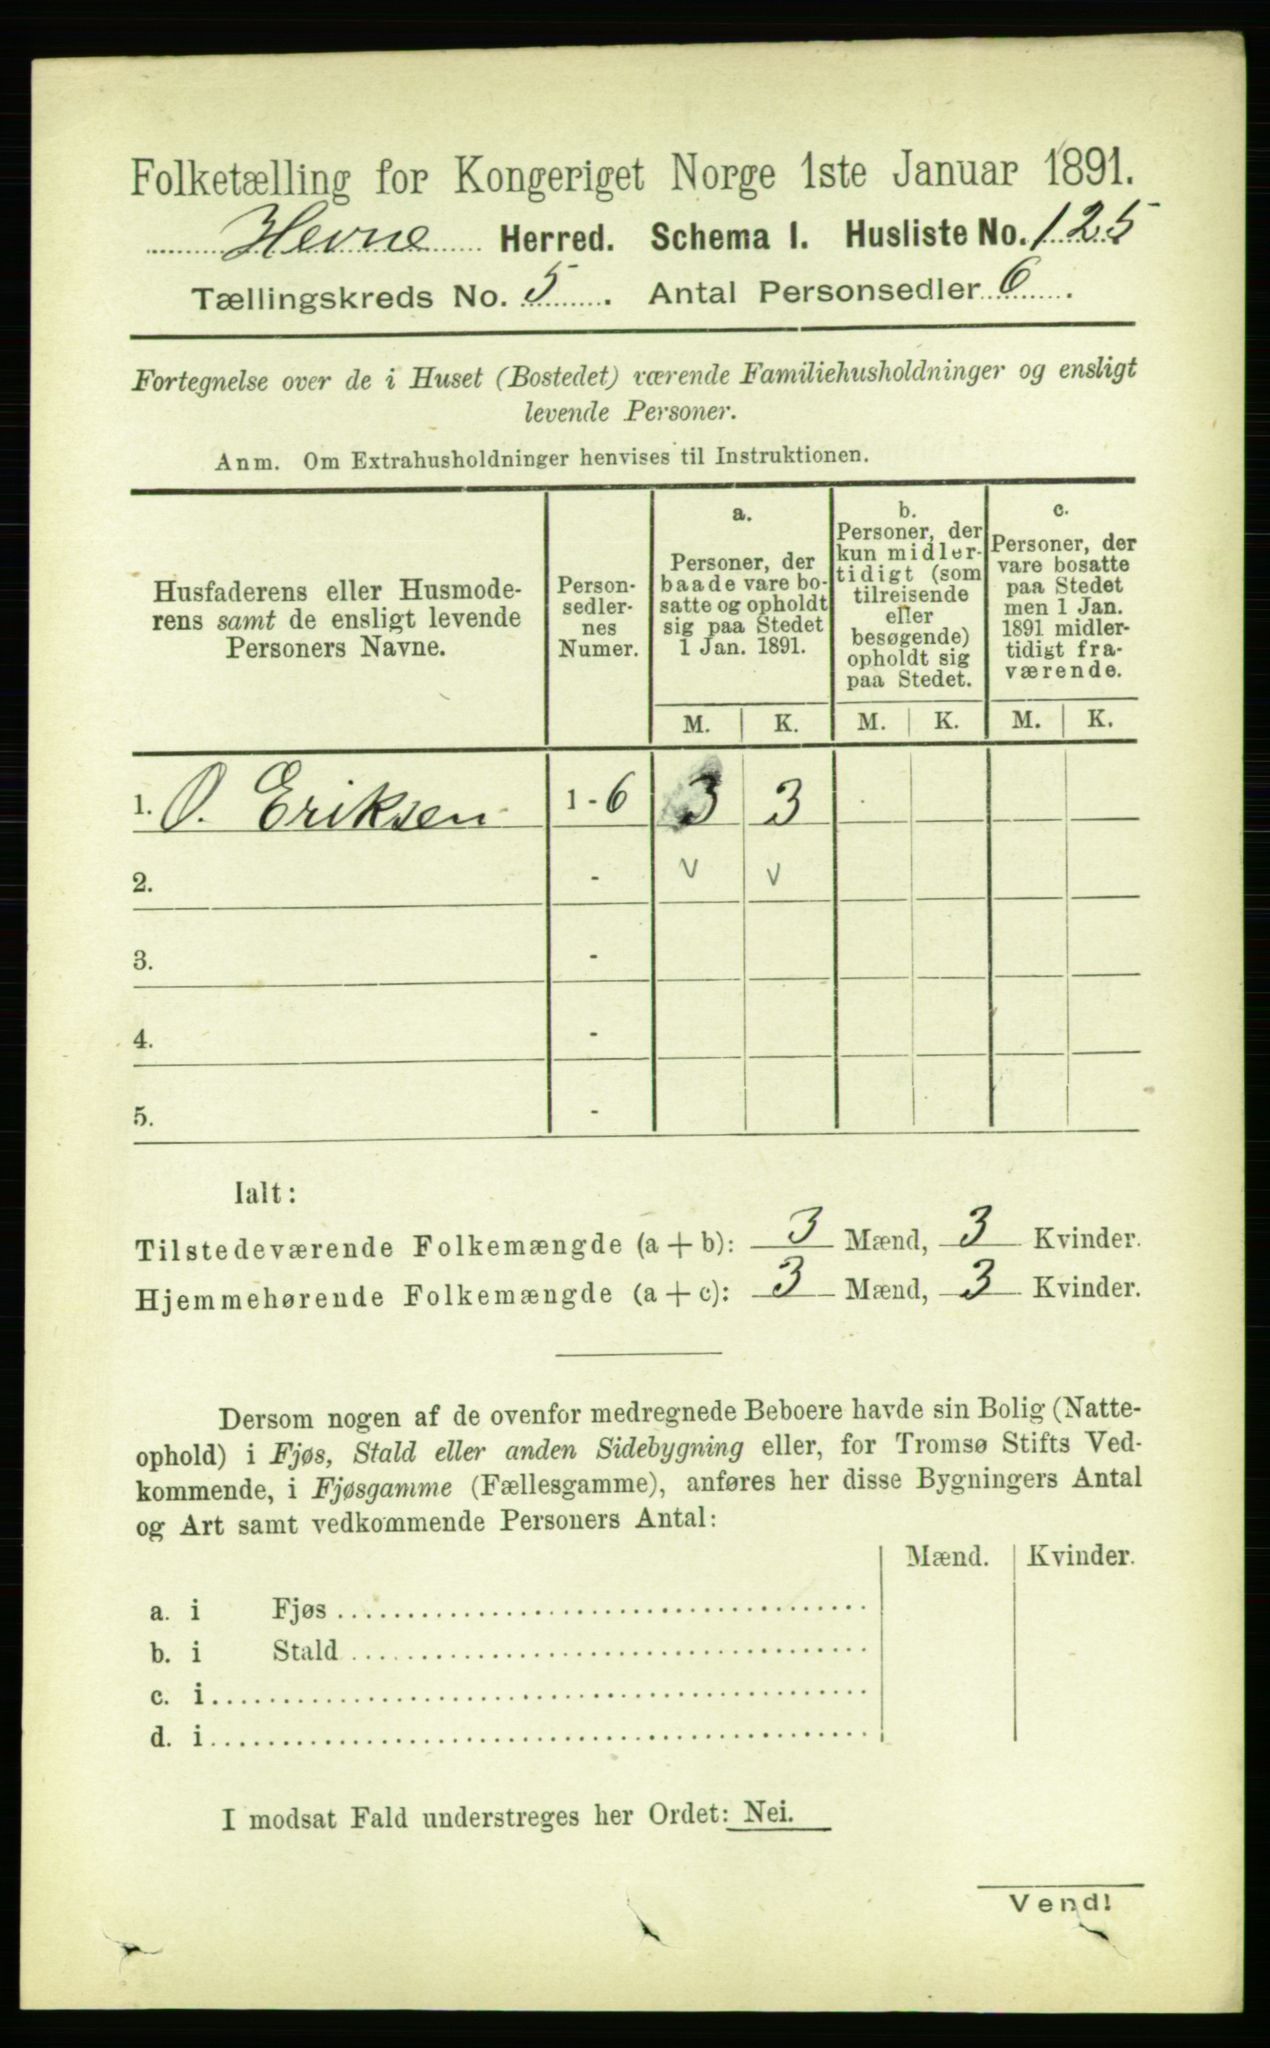 Folketælling for Kongeriget Norge 1ste Januar 1891.
Hevne Herred. Schema I. Husliste No. 125
Tællingskreds No. 5. Antal Personsedler 6.
Fortegnelse over de i Huset (Bostedet) værende Familiehusholdninger og ensligt
levende Personer.
Anm. Om Extrahusholdninger henvises til Instruktionen.
Husfaderens eller Husmode-
rens samt de ensligt levende
Personers Navne.
Person-
sedler-
nes
Numer.
a.
Personer, der
baade vare bo-
satte og opholdt
sig paa Stedet
1 Jan. 1891.
b.
Personer, der
kun midler-
tidigt (som
tilreisende
eller
besøgende)
opholdt sig
paa Stedet.
c.
Personer, der
vare bosatte
paa Stedet
men 1 Jan.
1891 midler-
tidigt fra-
værende.
M. K. M. K. M. K.
1. O. Eriksen 1 - 6 3 3
2. - v v
3. -
4. -
5. -
Ialt:
Tilstedeværende Folkemængde (a + b): 3 Mænd, 3 Kvinder.
Hjemmehørende Folkemængde (a + c): 3 Mænd, 3 Kvinder.
Dersom nogen af de ovenfor medregnede Beboere havde sin Bolig (Natte-
ophold) i Fjøs, Stald eller anden Sidebygning eller, for Tromsø Stifts Ved-
kommende, i Fjøsgamme (Fællesgamme), anføres her disse Bygningers Antal
og Art samt vedkommende Personers Antal:
Mænd. Kvinder.
a. i Fjøs
b. i Stald
c. i
d. i
I modsat Fald understreges her Ordet: Nei.
Vend!